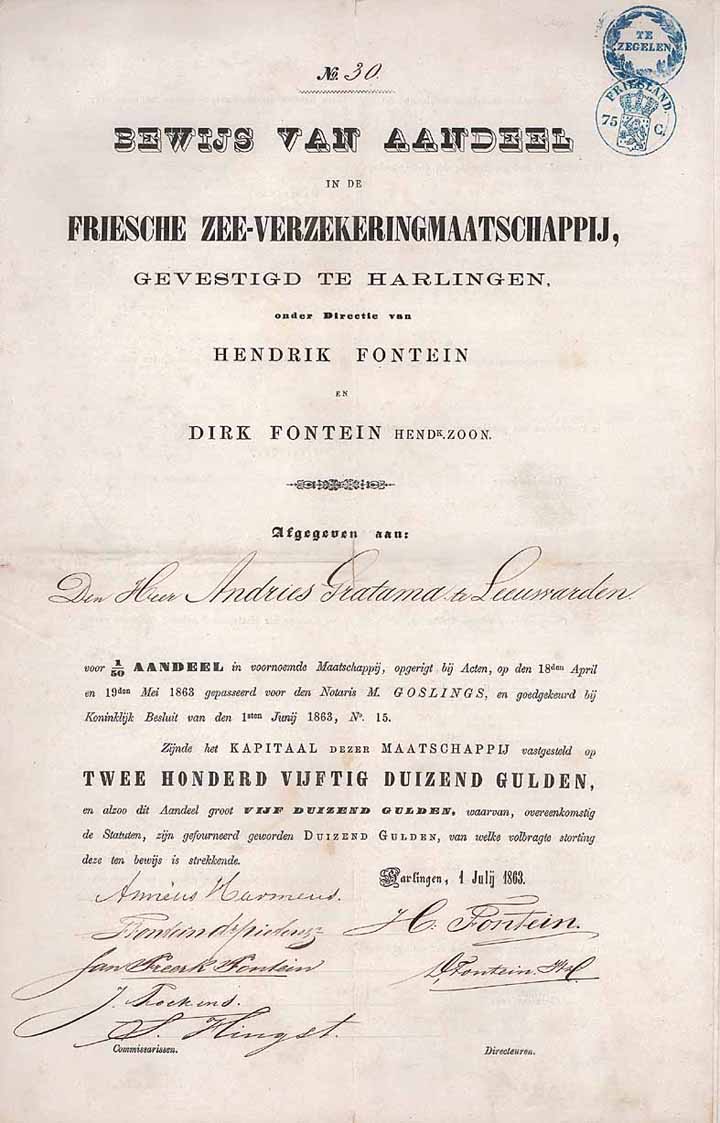 TE
ZEGELEN
FRIESLAND
75 C.
No. 30.
BEWIJS VAN AANDEEL
IN DE
FRIESCHE ZEE-VERZEKERINGMAATSCHAPPIJ,
GEVESTIGD TE HARLINGEN,
onder Directie van
HENDRIK FONTEIN
EN
DIRK FONTEIN HENDK.ZOON.
Afgegeven aan:
Den Heer Andries Gratama te Leeuwarden.
voor 1/50 AANDEEL in voornoemde Maatschappij, opgerigt bij Acten, op den 18den April
en 19den Mei 1863 gepasseerd voor den Notaris M. GOSLINGS, en goedgekeurd bij
Koninklijk Besluit van den 1sten Junij 1863, No. 15.
Zijnde het KAPITAAL DEZER MAATSCHAPPIJ vastgesteld op
TWEE HONDERD VIJFTIG DUIZEND GULDEN,
en alzoo dit Aandeel groot VIJF DUIZEND GULDEN, waarvan, overeenkomstig
de Statuten, zijn gefourneerd geworden DUIZEND GULDEN, van welke volbragte storting
deze ten bewijs is strekkende.
Harlingen, 1 Julij 1863.
Harmens.
H. Fontein.
Fontein
Jan Freerk Fontein
D. Fontein Hz
J. Fockens.
S. Hingst.
Commissarissen.
Directeuren.